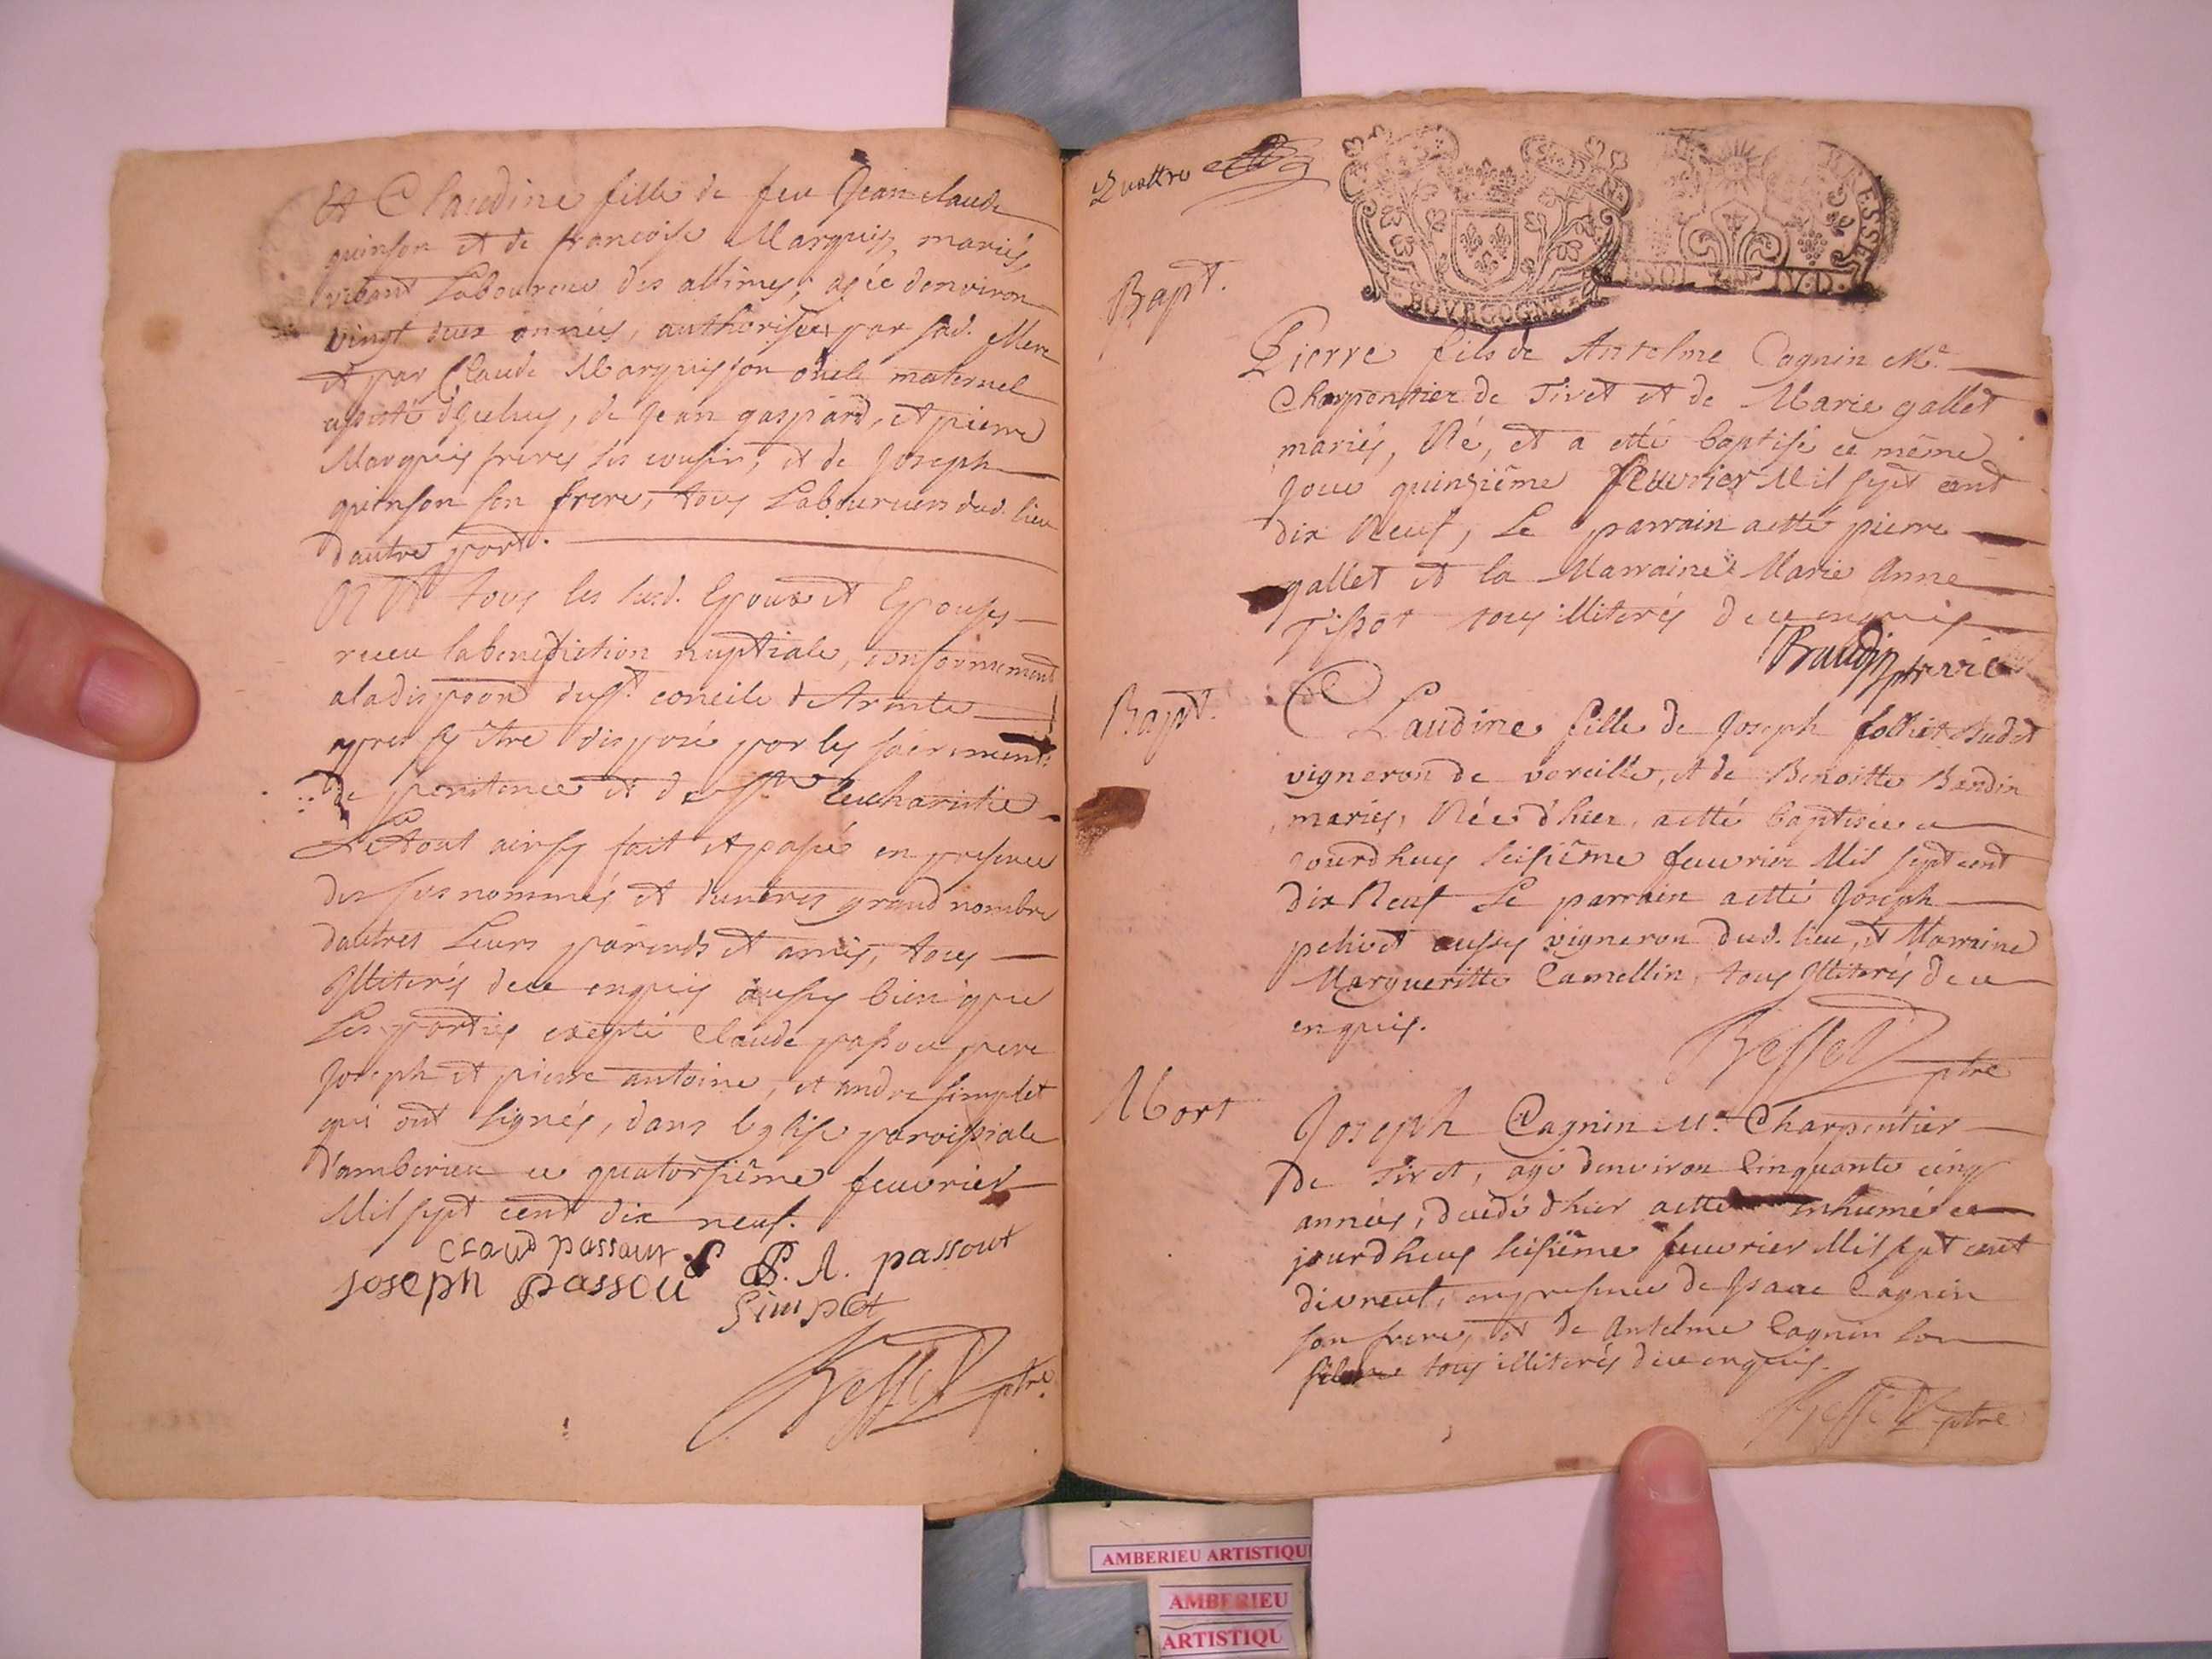 Et Claudine fille de feu Jean claude
quinson et de francoise Marquis, mariés,
vivant Laboureur des allimes, agée denviron
vingt deux années, authorisée par sad. Mere
et par Claude Marquis son oncle maternel
assisté d'iceluy, de Jean gaspard, et pierre
Marquis freres ses cousins, et de Joseph
quinson son frere, tous Laboureurs dud. lieu
d'autre part.
Ont tous les susd. Epoux et Epouses
receu la benediction nuptiale, conformement
a la dispoon du st. concile de Trente
apres sy être disposé par les sacrements
de penitence et de ste Eucharistie
Le tout ainsy fait et passé en presence
des susnommés et d'un tres grand nombre
dautres Leurs parents et amis, tous
Illiterés de ce enquis aussy bien que
Les parties excepté Claude passou pere
Joseph et pierre antoine, et andre simplet
qui ont signés, dans leglise paroissiale
d'amberieu ce quatorsiême feuvrier
Mil sept cent dix neuf.
claud passout
Joseph passou P. A. passout
Simplet
Besset ptre
Quattre
BOVRGOGNE
BRESSE
SOL IV.D.
Bapt.
Pierre fils de Antelme Cagnin Me
Charpentier de Tiret et de Marie gallet
mariés, Né, et a etté baptisé ce même
Jour quinziême feuvrier Mil sept cent
dix Neuf, Le parrain a etté pierre
gallet et la Marraine Marie Anne
Tissot tous illiterés de ce enquis
Baudin ptre vic
Bapt.
Claudine fille de Joseph folliet Budet
vigneron de vareille, et de Benoitte Bardin
mariés, Née d'hier, a etté baptisée ce
jourdhuy seisiême feuvrier Mil sept cent
dix Neuf Le parrain a etté Joseph
pehivet aussy vigneron dud. lieu, et Marraine
Margueritte Camellin, tous Illiterés de ce
enquis.
Besset ptre
Mort
Joseph Cagnin Me Charpentier
De Tiret, agé denviron Cinquante cinq
années, decédé d'hier a etté inhumé ce
jourdhuy seisiême feuvrier Mil sept cent
dix neuf, en presence de Isaac Cagnin
son frere, et de Antelme Cagnin son
fils tous illiterés de ce enquis.
Besset ptre
AMBERIEU ARTISTIQU
AMBERIEU
ARTISTIQU